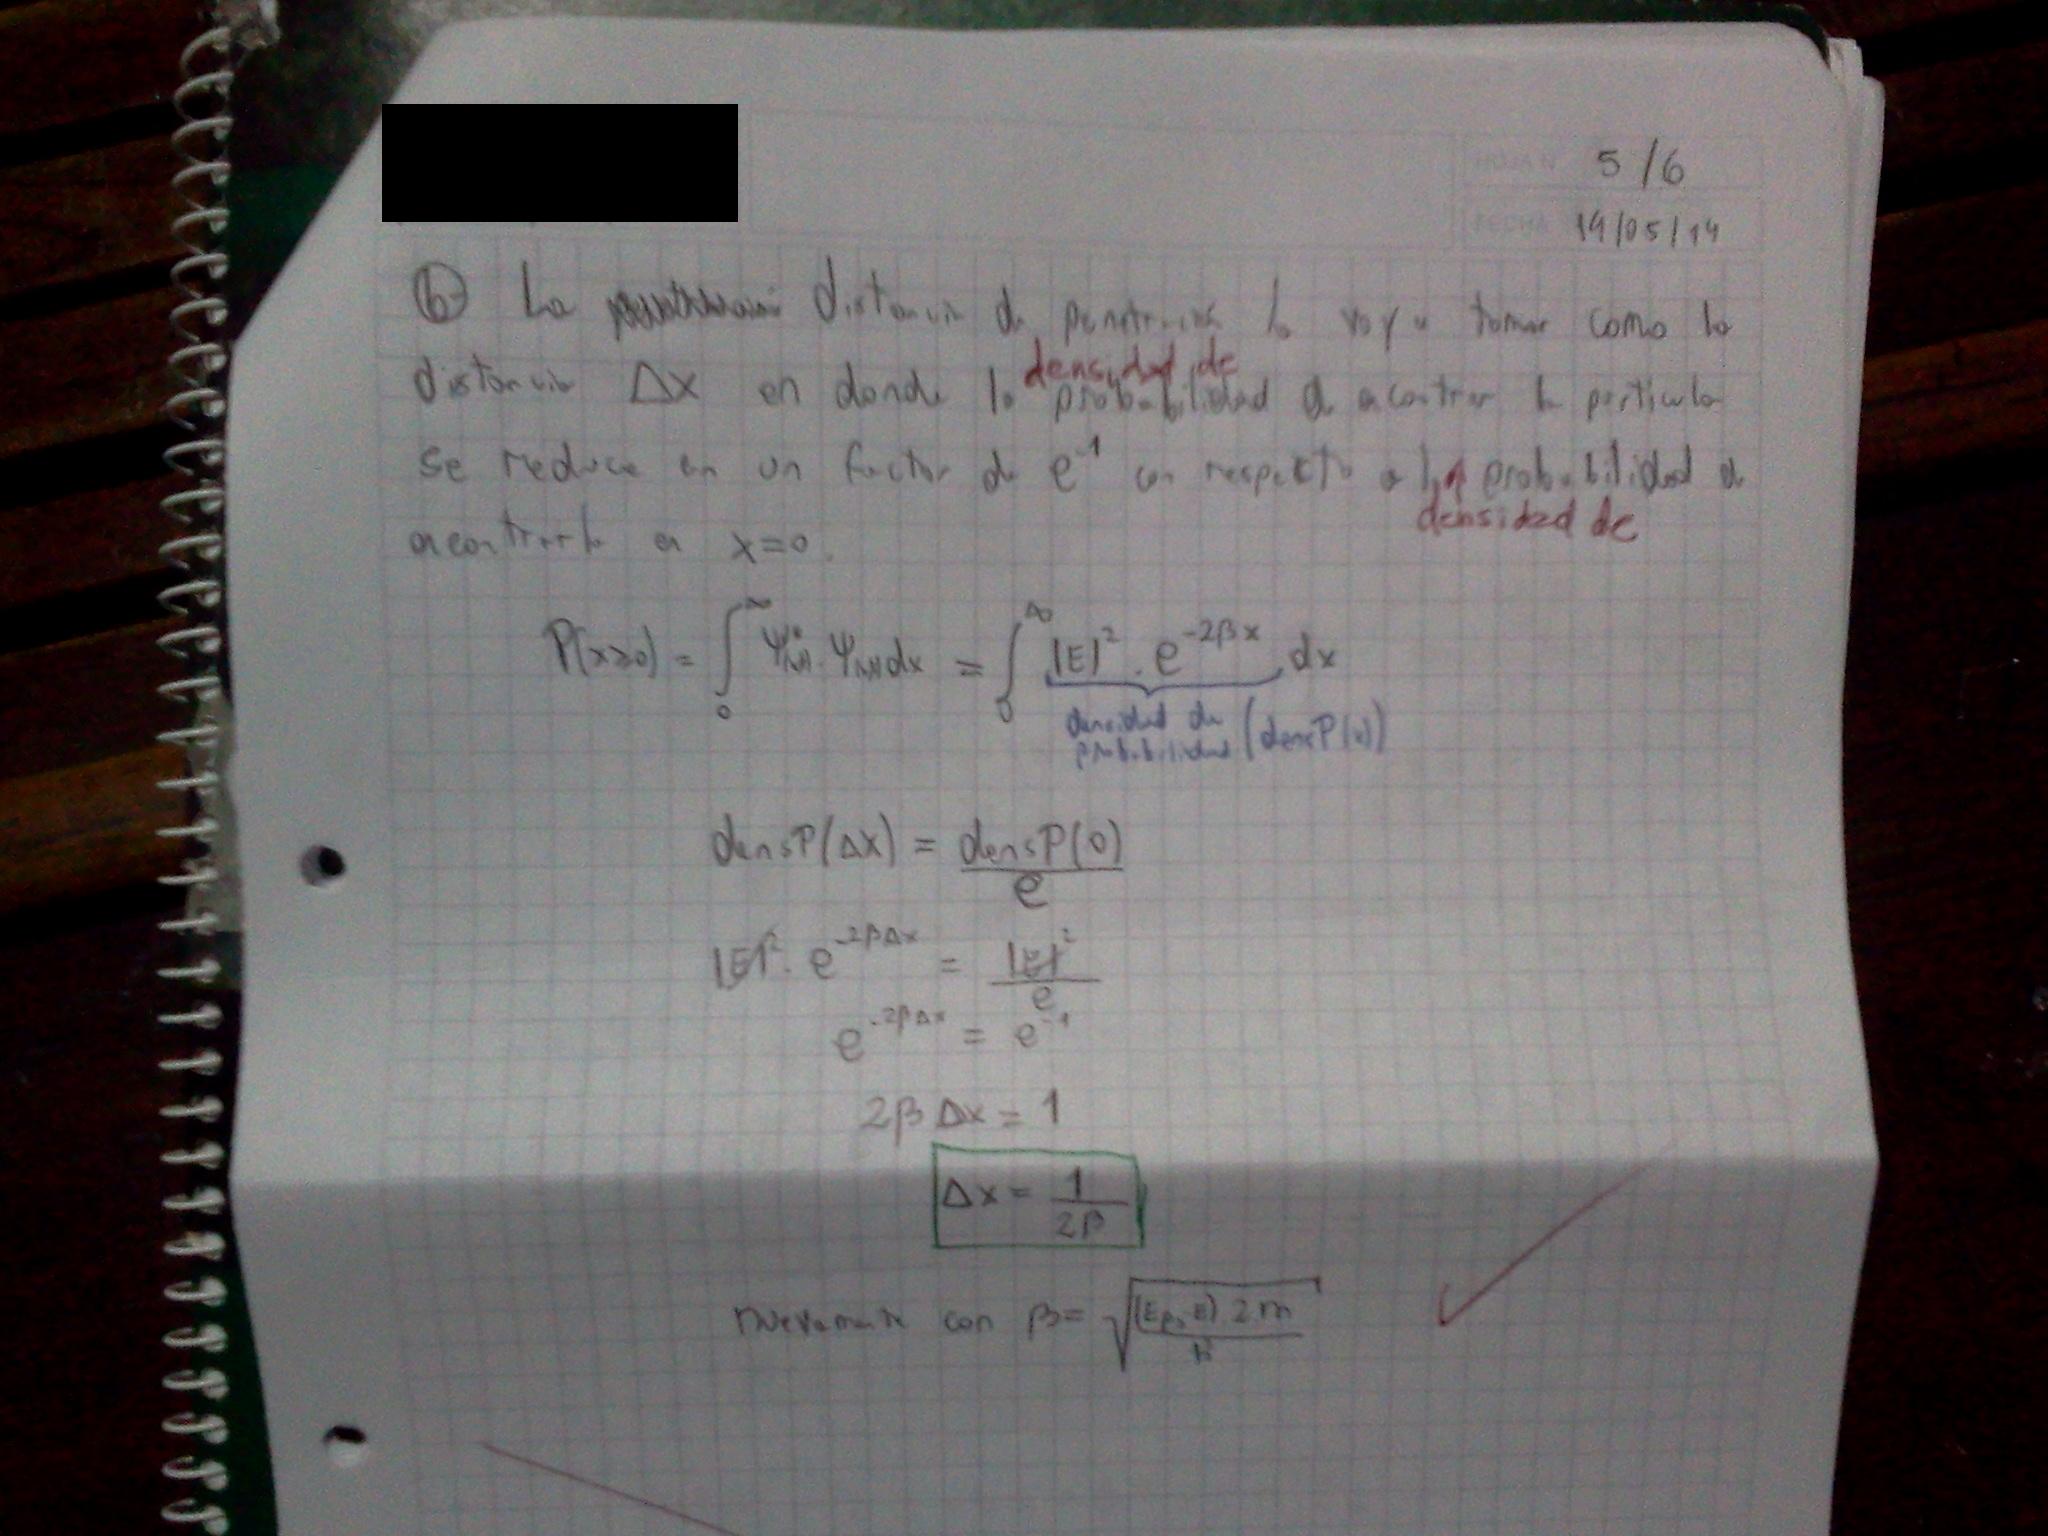 HOJA Nº 5/6
FECHA 19/05/14
b) La distancia de penetración la voy a tomar como la
densidad de
distancia Δx en donde la probabilidad de encontrar la partícula
se reduce en un factor de e⁻¹ con respecto a la probabilidad de
densidad de
encontrarla en x=0.
P(x≥0) = ∫₀^∞ Ψ*(x) · Ψ(x) dx = ∫₀^∞ |E|² · e^(-2βx) dx
densidad de probabilidad (densP(x))
densP(Δx) = densP(0)/e
|E|² · e^(-2βΔx) = |E|²/e
e^(-2βΔx) = e⁻¹
2βΔx = 1
Δx = 1/(2β)
nuevamente con β = √((Ep₀-E) 2m/ħ)